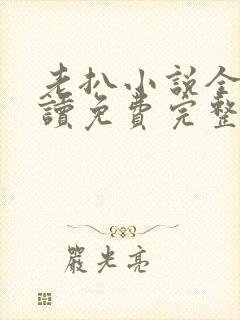 老扒小说全
讀免費完整
嚴光亮